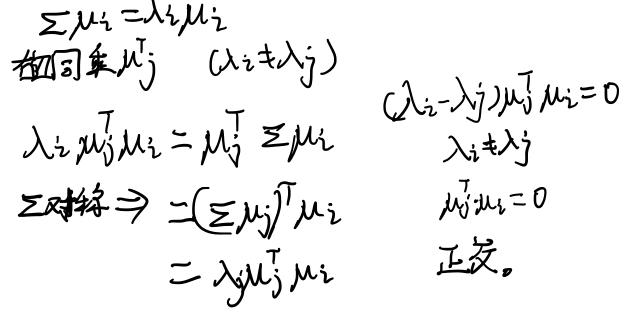 Σμᵢ = λᵢμᵢ
同乘 μⱼᵀ (λᵢ ≠ λⱼ)
λᵢ μⱼᵀ μᵢ = μⱼᵀ Σμᵢ
Σ对称 ⇒ = (Σμⱼ)ᵀ μᵢ
= λⱼμⱼᵀ μᵢ
(λᵢ-λⱼ)μⱼᵀ μᵢ = 0
λᵢ ≠ λⱼ
μⱼᵀ μᵢ = 0
正交。